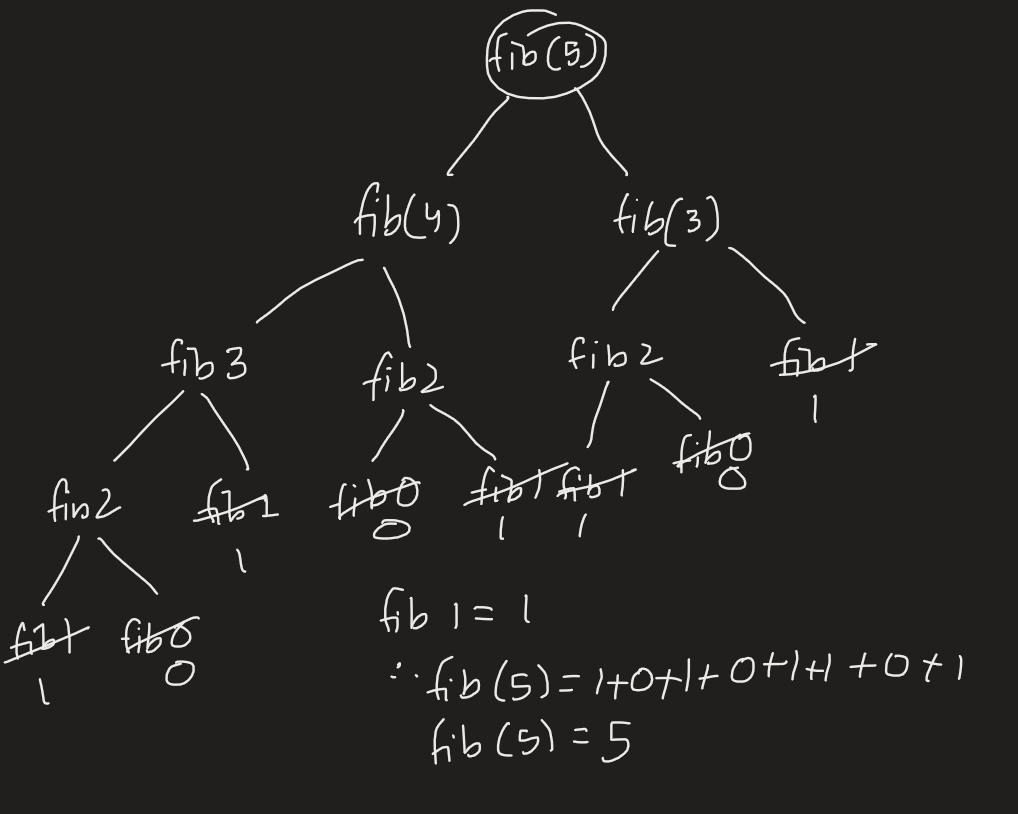 fib(5)
fib(4) fib(3)
fib 3 fib 2 fib 2 fib 1
1
fin 2 fib 1 fib 0 fib 1 fib 1 fib 0
1 0 1 1 0
fib 1 fib 0
1 0
fib 1 = 1
∴ fib (5) = 1+0+1+0+1+1+0+1
fib (5) = 5